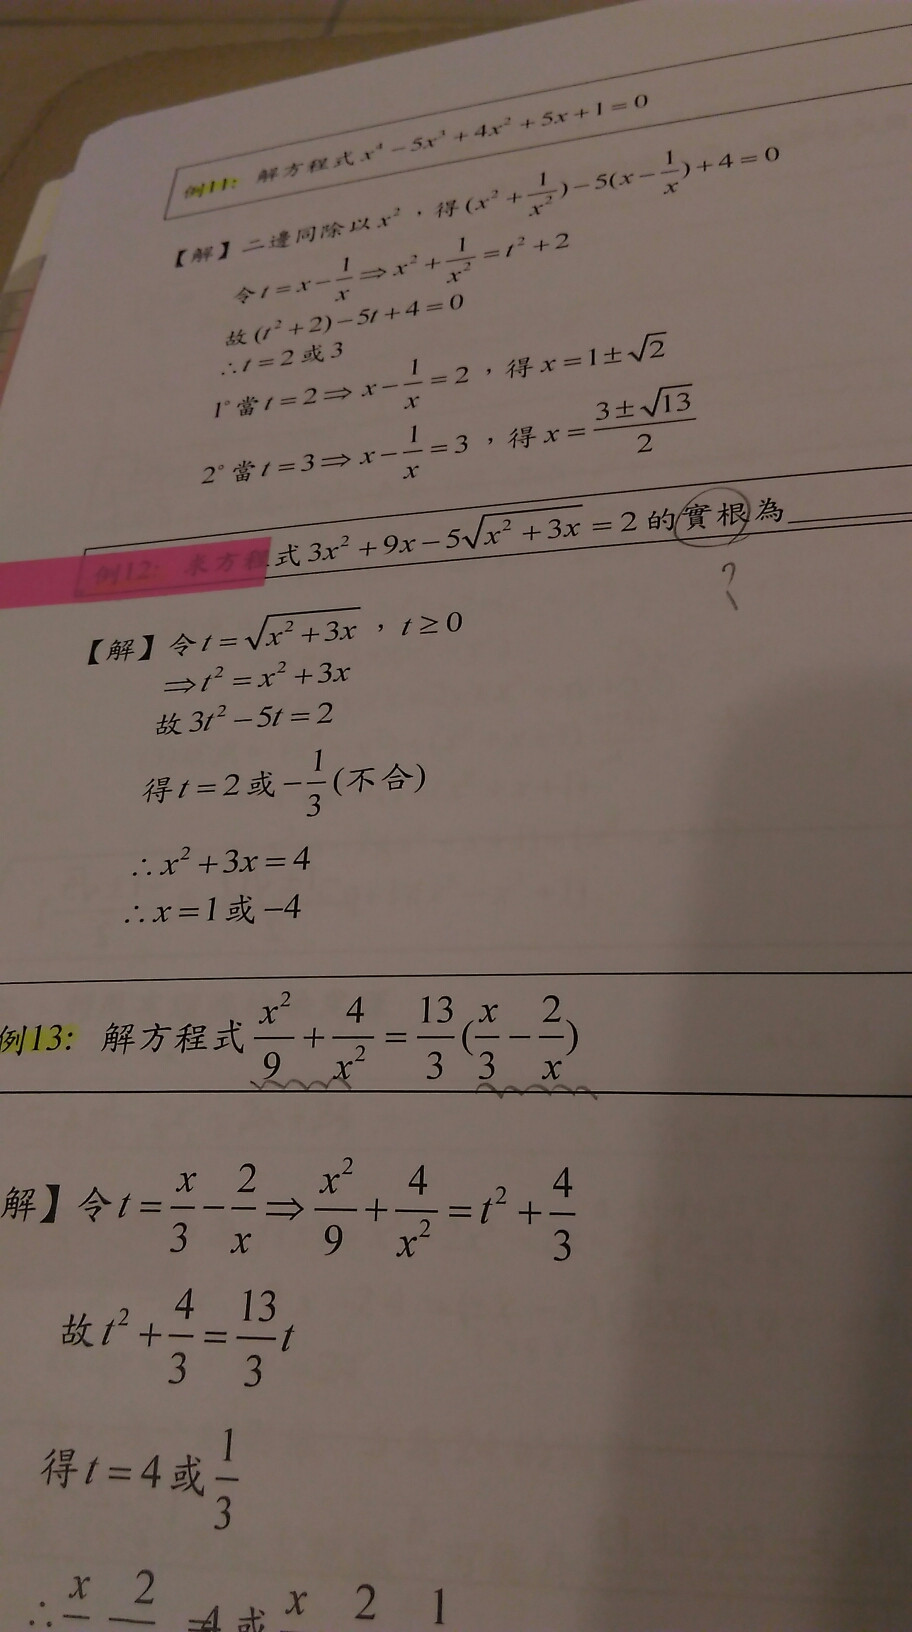 例11: 解方程式 x⁴ − 5x³ + 4x² + 5x + 1 = 0
【解】二邊同除以 x²,得 (x² + 1/x²) − 5(x − 1/x) + 4 = 0
令 t = x − 1/x ⇒ x² + 1/x² = t² + 2
故 (t² + 2) − 5t + 4 = 0
∴ t = 2 或 3
1° 當 t = 2 ⇒ x − 1/x = 2,得 x = 1 ± √2
2° 當 t = 3 ⇒ x − 1/x = 3,得 x = (3 ± √13)/2
例12: 求方程式 3x² + 9x − 5√(x² + 3x) = 2 的實根為______
?
【解】令 t = √(x² + 3x),t ≥ 0
⇒ t² = x² + 3x
故 3t² − 5t = 2
得 t = 2 或 −1/3 (不合)
∴ x² + 3x = 4
∴ x = 1 或 −4
例13: 解方程式 x²/9 + 4/x² = 13/3 (x/3 − 2/x)
解】令 t = x/3 − 2/x ⇒ x²/9 + 4/x² = t² + 4/3
故 t² + 4/3 = 13/3 t
得 t = 4 或 1/3